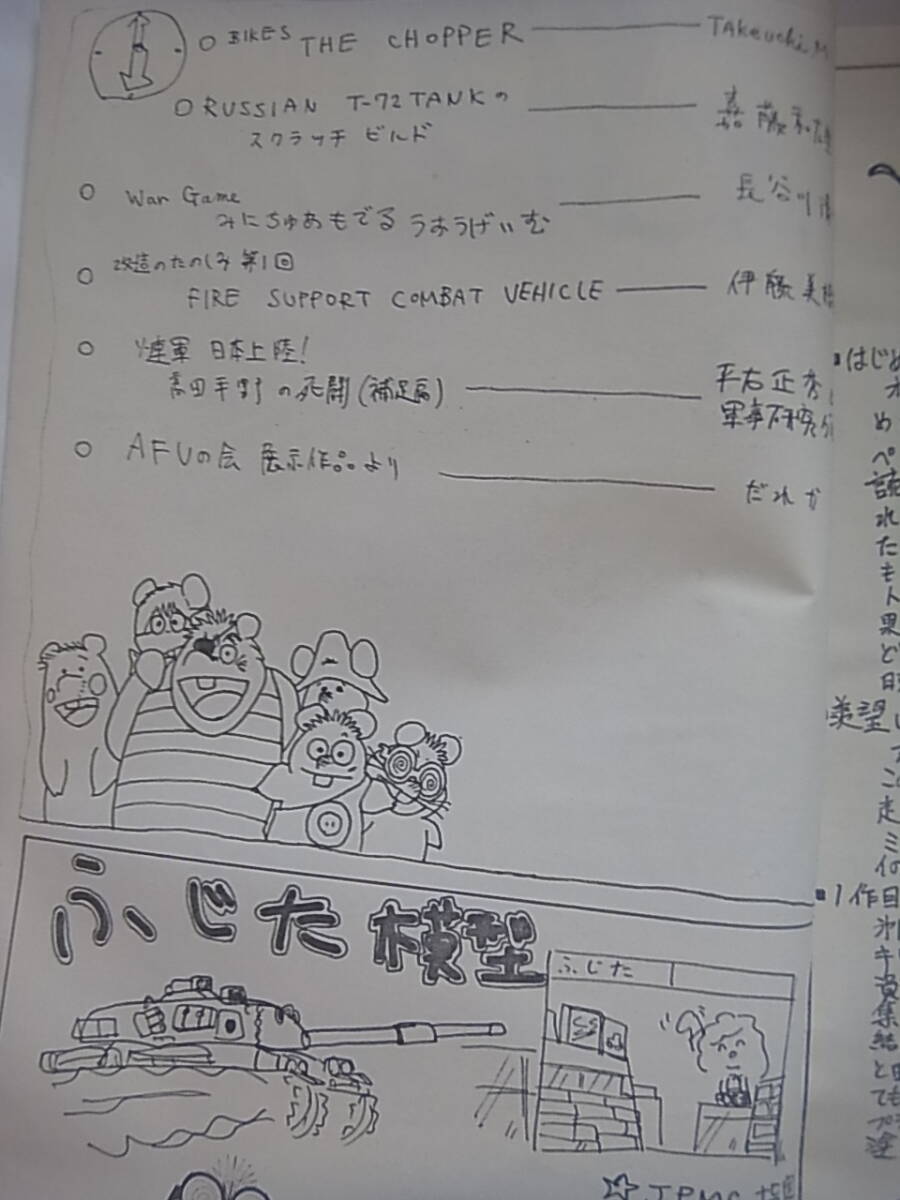 ○ BIKES THE CHOPPER TAKeuchi.M
○ RUSSIAN T-72 TANKの
スクラッチ ビルド
○ War Game 長谷川
みにちゅあもでる うおうげいむ
○ 改造のたのしみ 第1回
FIRE SUPPORT COMBAT VEHICLE 伊藤美
○ ソ連軍 日本上陸!
の死闘(補足編) 平右正
軍事研究
○ AFVの会 展示作品より だれか
ふじた 模型
ふじた
SS
はじめ
め
ペ
読
れ
た
も
ト
果
ど
日
こ
走
ミ
■1作目
資
集
結
と
ても
塗
☆JPMC